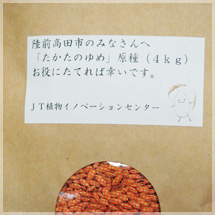 陸前高田市のみなさんへ
「たかたのゆめ」原種（４ｋｇ）
お役にたてれば幸いです。
ＪＴ植物イノベーションセンター